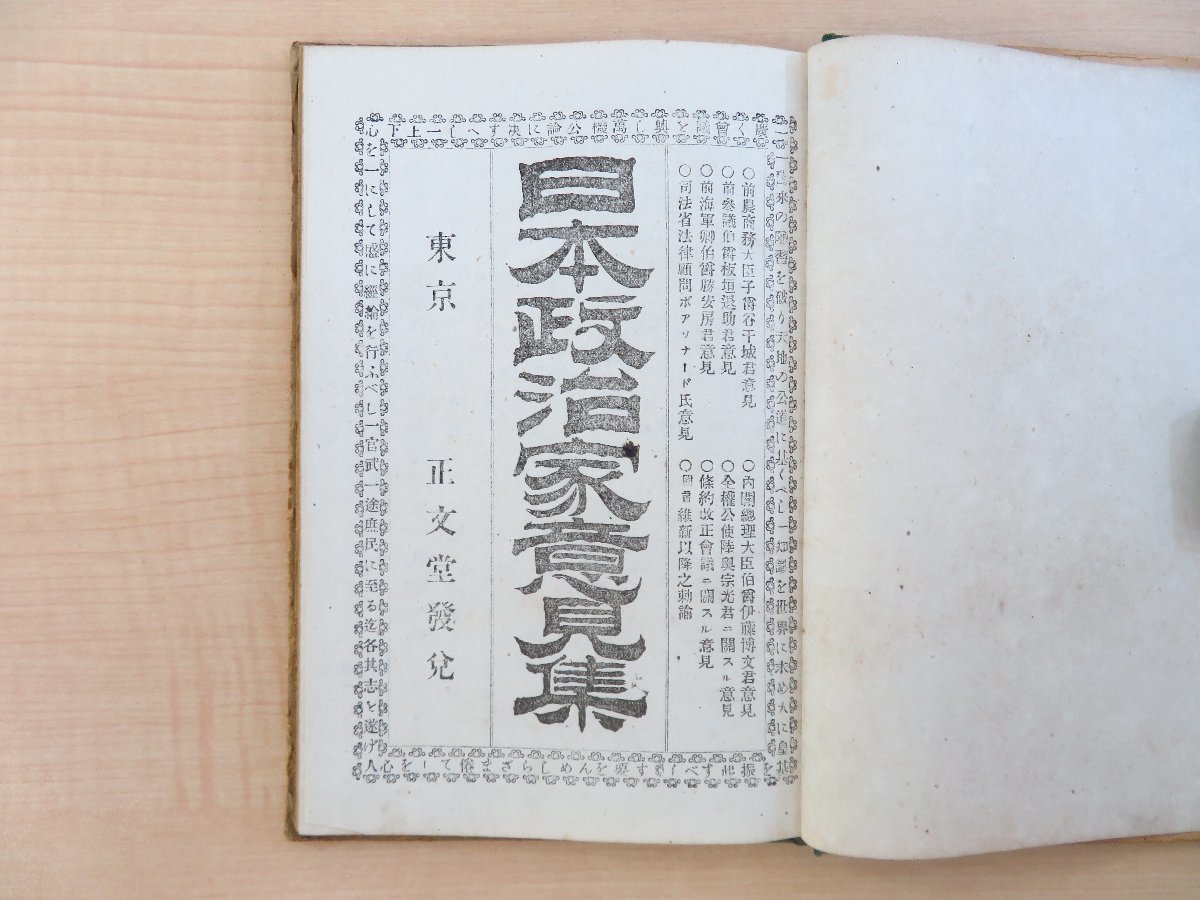 一廣く會議を興し萬機公論に决すへし一上下
心を一にして盛に經綸を行ふべし一官武一途庶民に至る迄各其志を遂げ
人心をして倦まざらしめんを要す
一舊來の陋習を破り天地の公道に基くべし一知識を世界に求め大に皇基
を振起すべし
〇前農商務大臣子爵谷干城君意見
〇內閣總理大臣伯爵伊藤博文君意見
〇前參議伯爵板垣退助君意見
〇全權公使陸奧宗光君ニ關スル意見
〇前海軍卿伯爵勝安房君意見
〇條約改正會議ニ關スル意見
〇司法省法律顧問ボアソナード氏意見
〇附言維新以降之勅諭
日本政治家意見集
東京 正文堂發兌